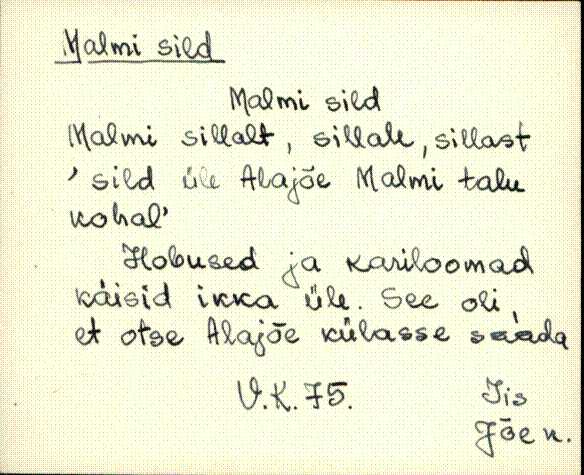 Malmi sild
Malmi sild
Malmi sillalt, sillale, sillast
'sild üle Alajõe Malmi talu
kohal'
Hobused ja kariloomad
käisid ikka üle. See oli,
et otse Alajõe külasse saada
V.K. 75. Iis
Jõe k.